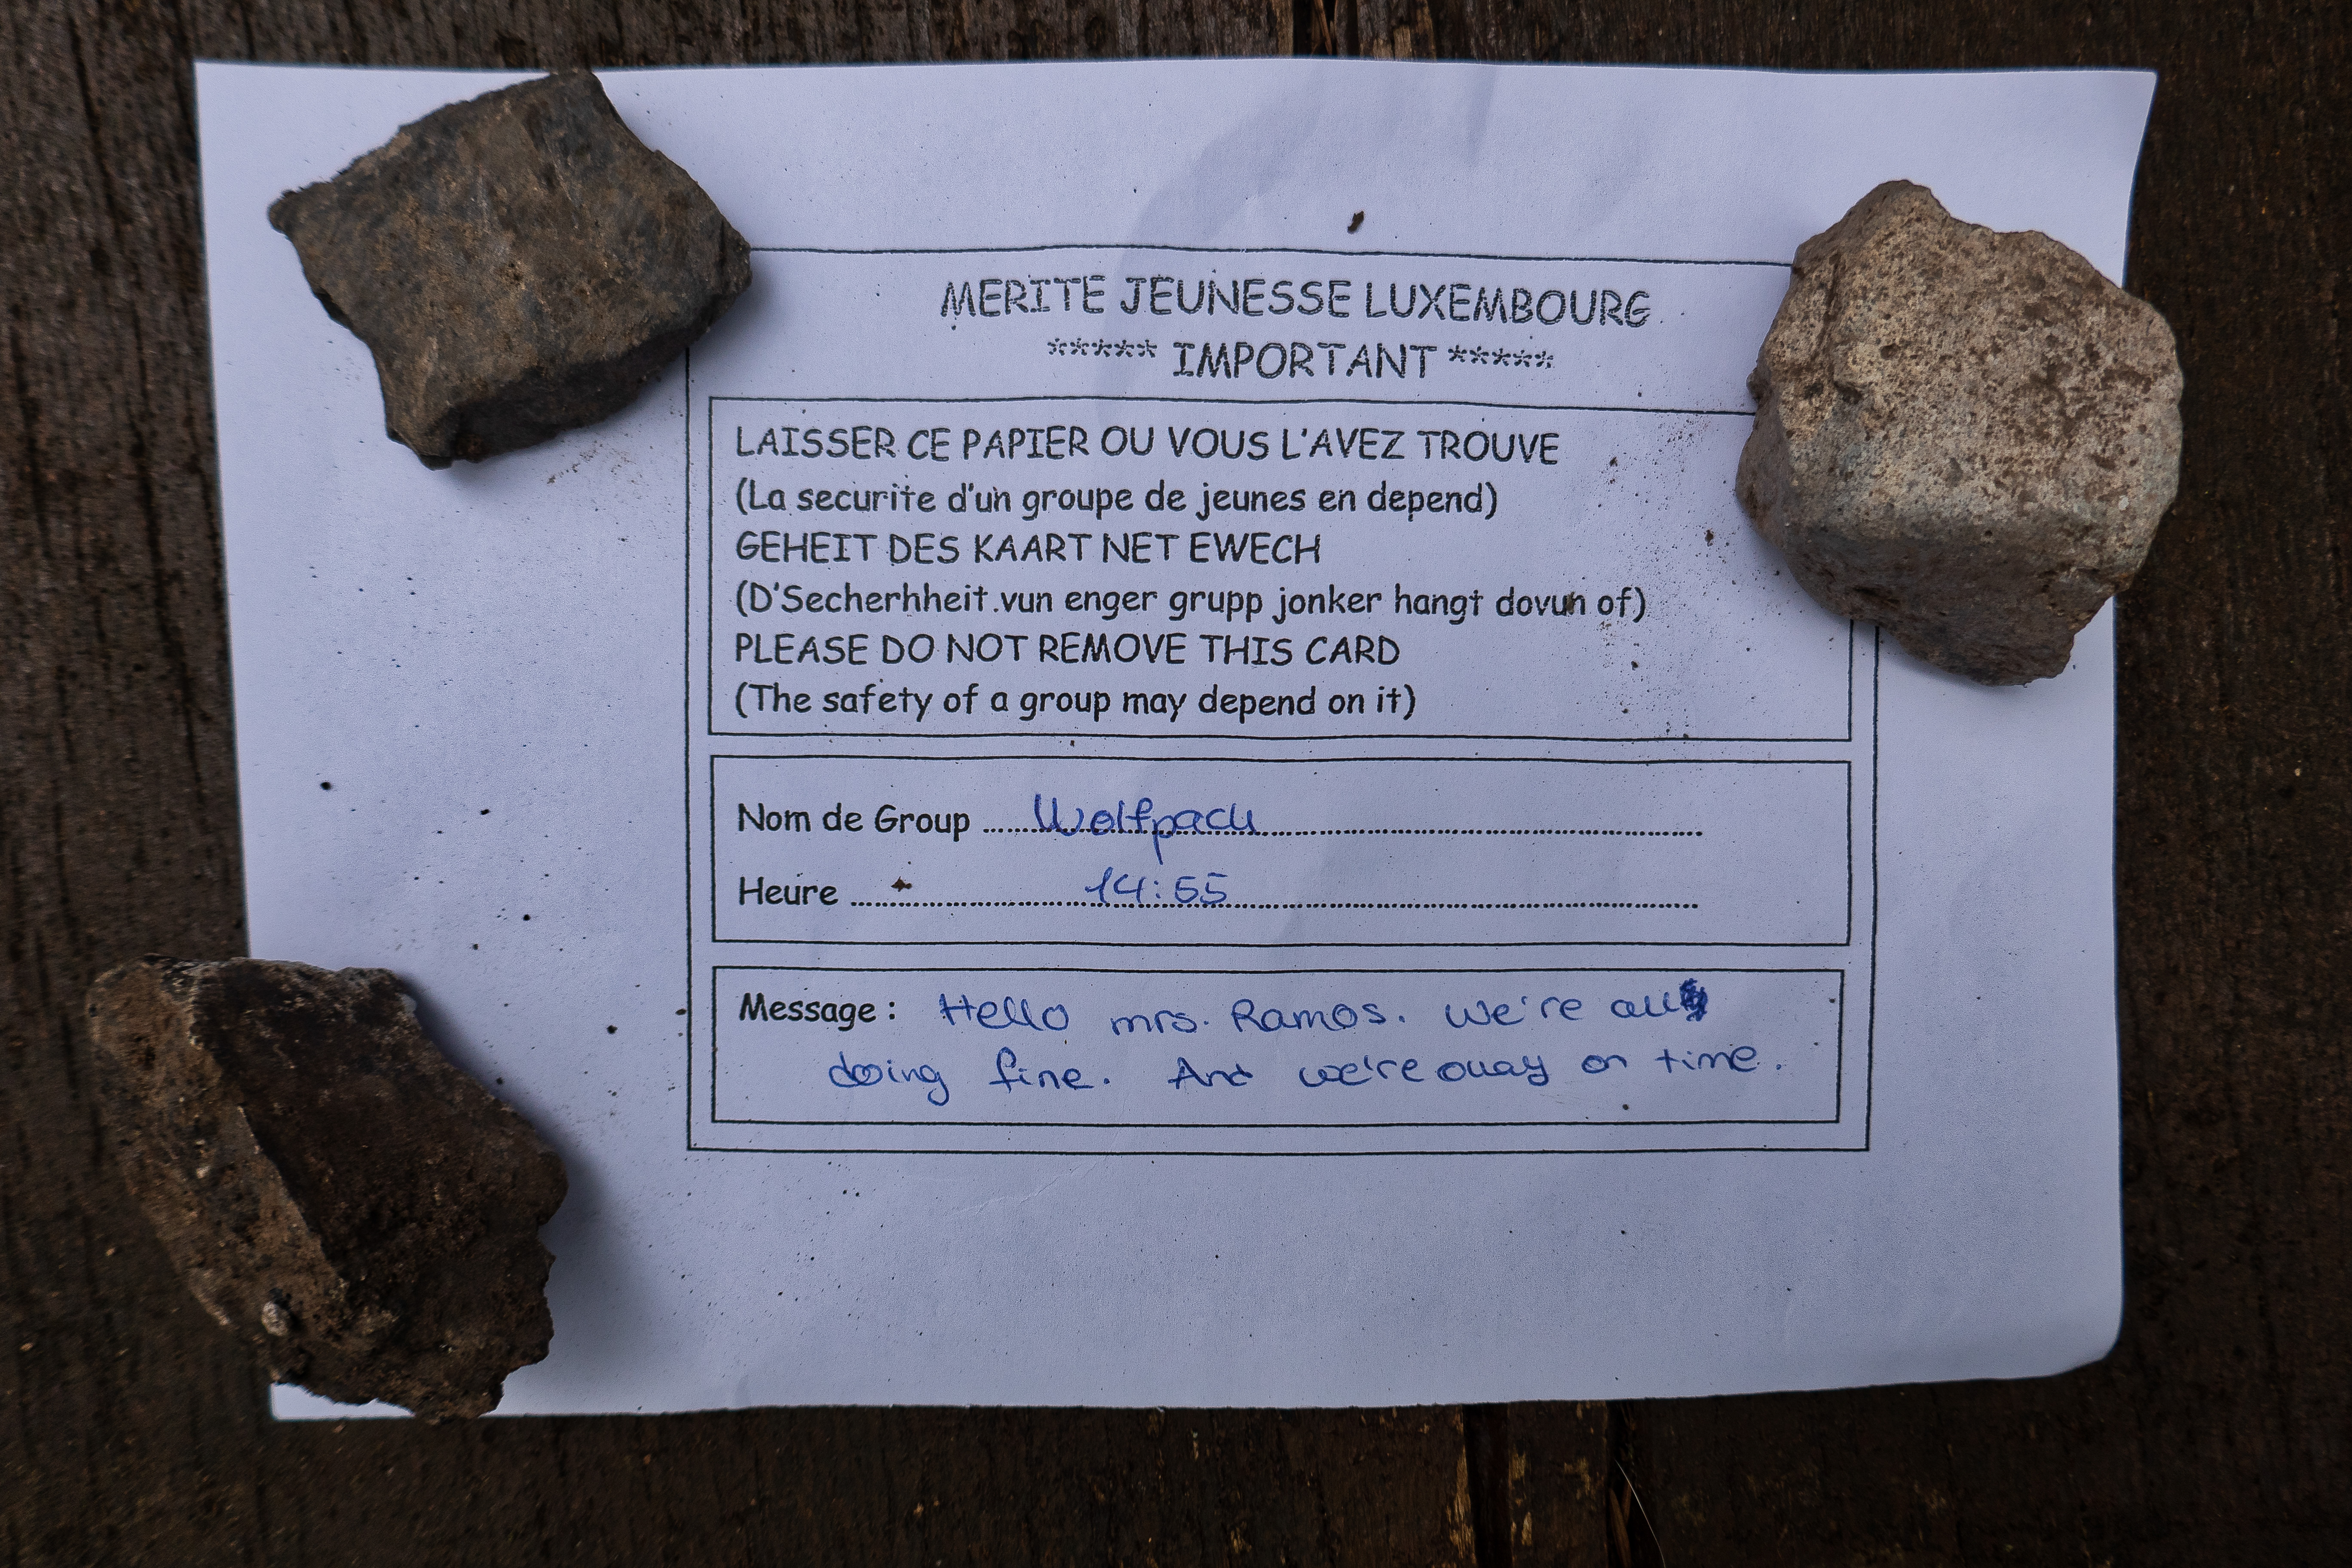 MERITE JEUNESSE LUXEMBOURG
***** IMPORTANT *****
LAISSER CE PAPIER OU VOUS L'AVEZ TROUVE
(La securite d'un groupe de jeunes en depend)
GEHEIT DES KAART NET EWECH
(D'Secherhheit.vun enger grupp jonker hangt dovun of)
PLEASE DO NOT REMOVE THIS CARD
(The safety of a group may depend on it)
Nom de Group ...... Wolfpack
Heure ...... 14:55
Message : Hello mrs. Ramos. We're all
doing fine. And we're on time.